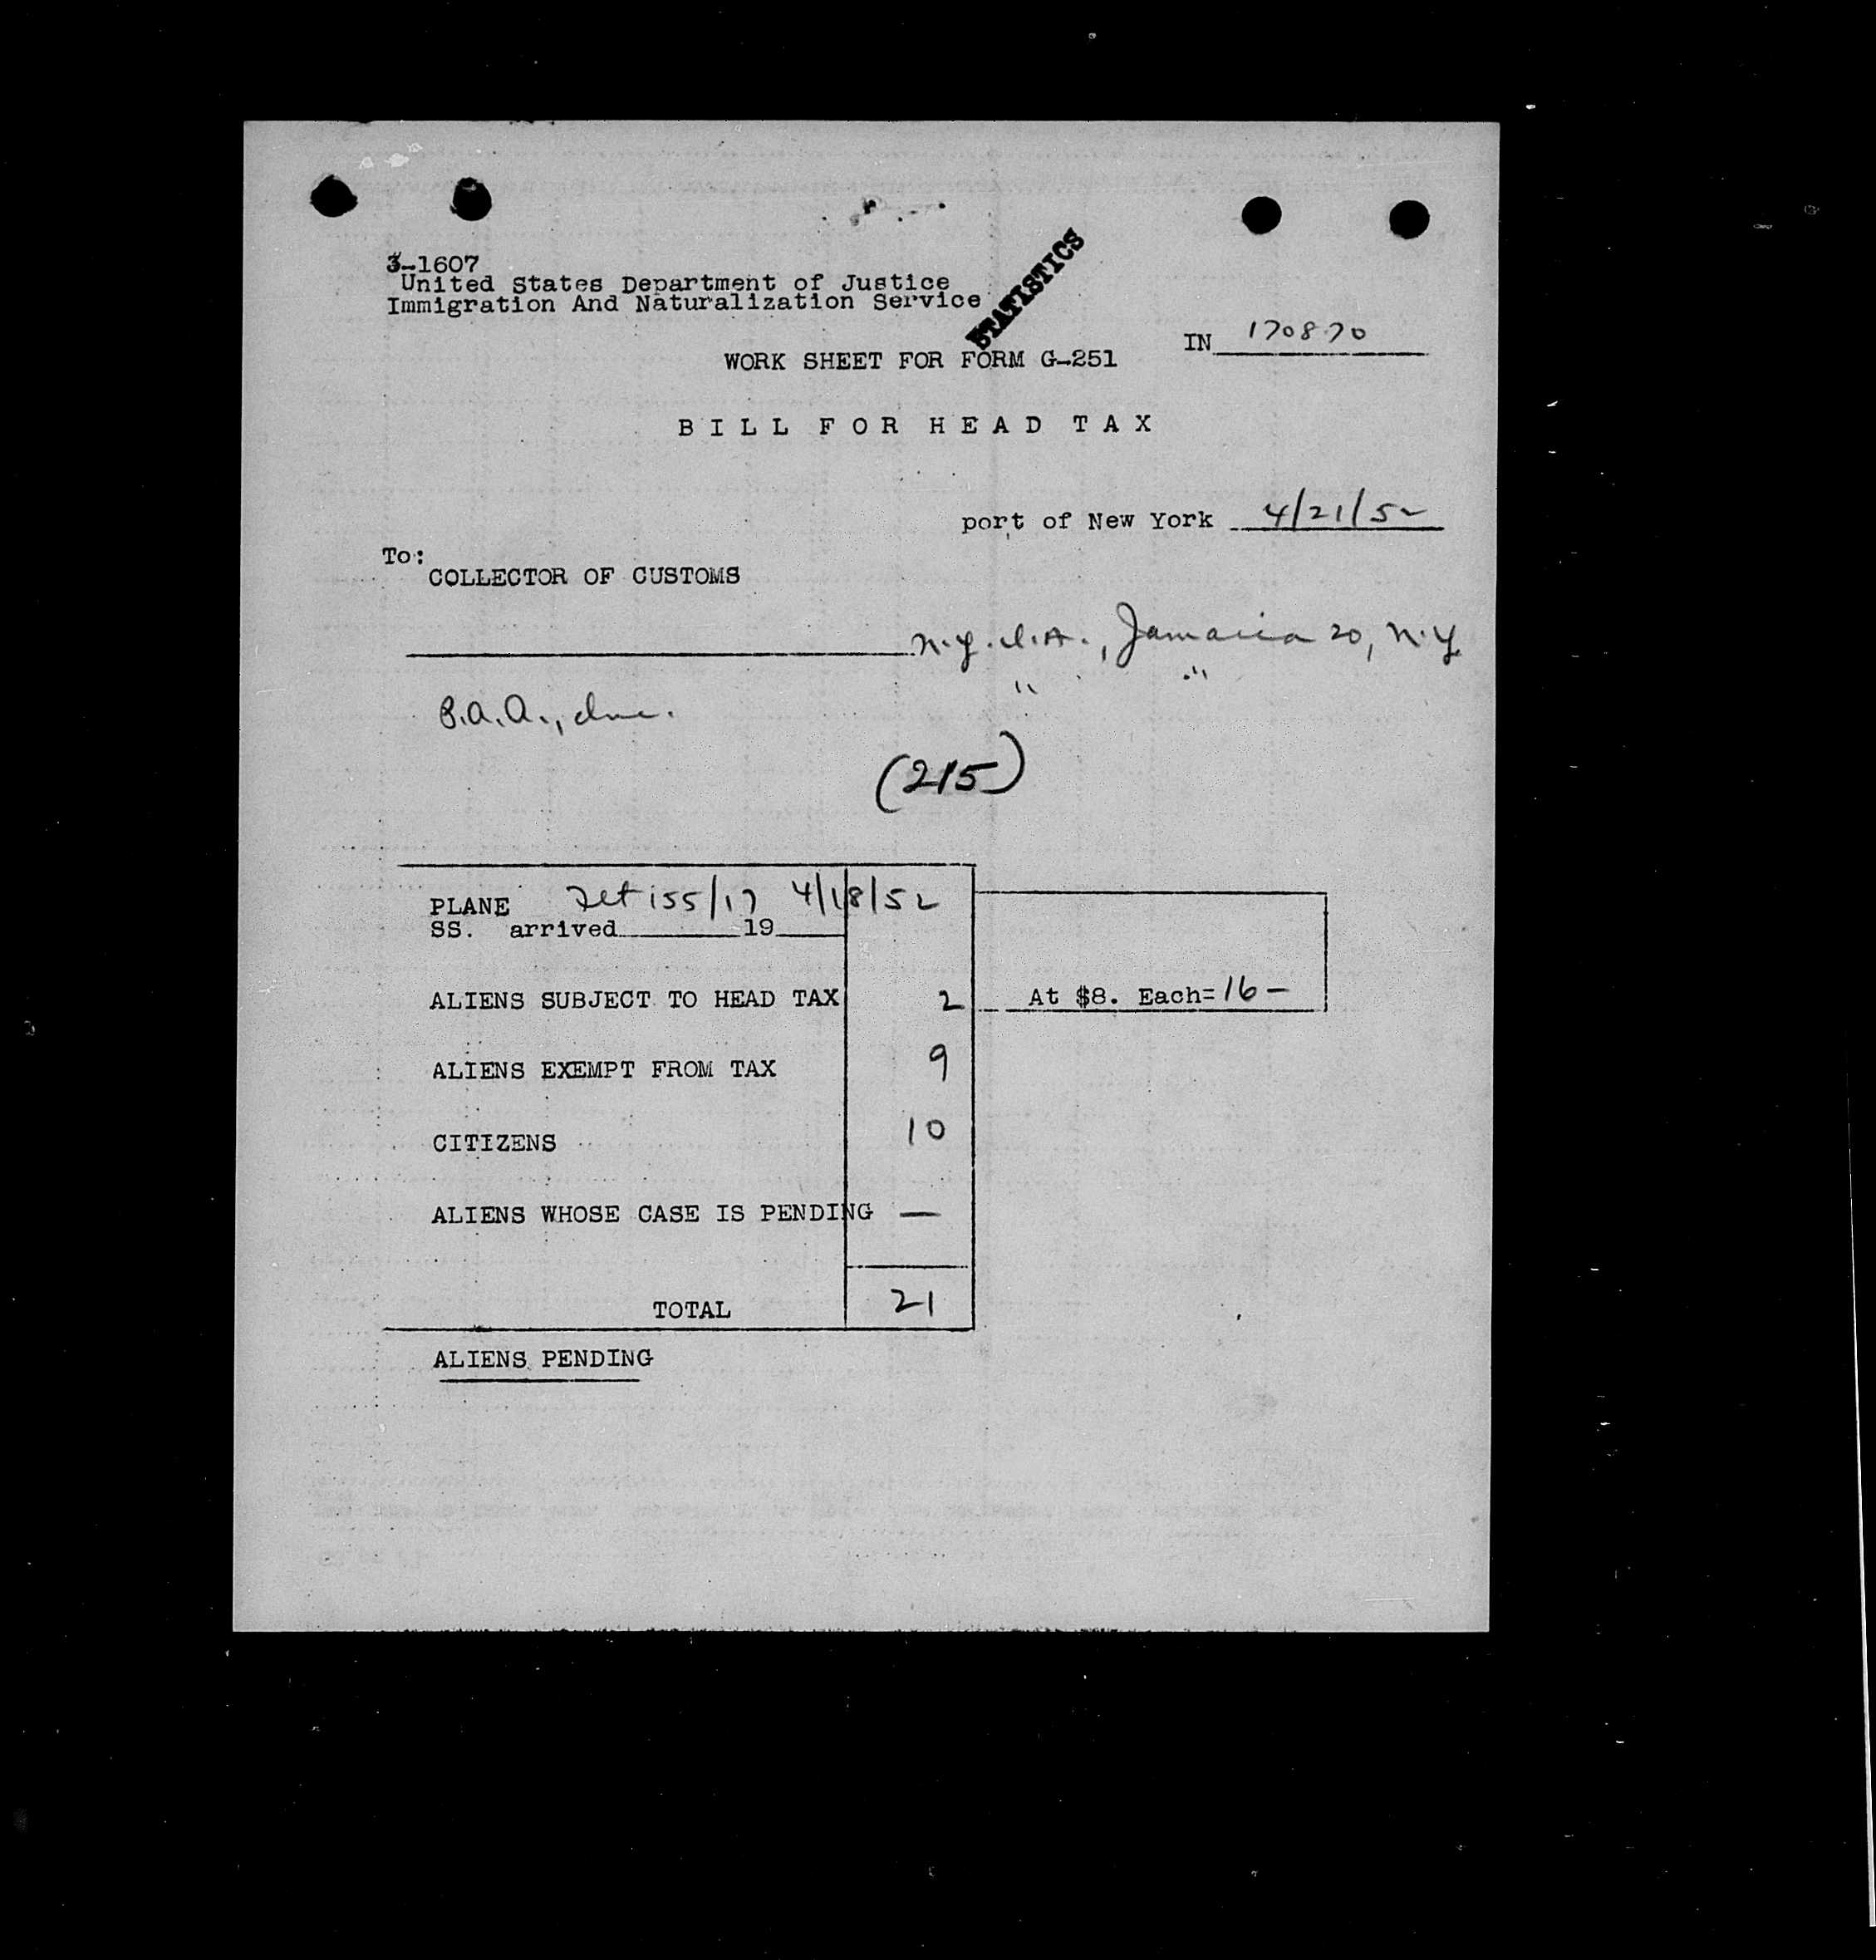 3-1607
United States Department of Justice
Immigration And Naturalization Service
STATISTICS
IN 170870
WORK SHEET FOR FORM G-251
BILL FOR HEAD TAX
port of New York 4/21/52
To:
COLLECTOR OF CUSTOMS
N.Y.I.A., Jamaica 20, N.Y.
" "
P.A.A., Inc.
(215)
PLANE 155/17 4/18/52
SS. arrived 19
ALIENS SUBJECT TO HEAD TAX 2 At $8. Each= 16 —
ALIENS EXEMPT FROM TAX 9
CITIZENS 10
ALIENS WHOSE CASE IS PENDING —
TOTAL 21
ALIENS PENDING